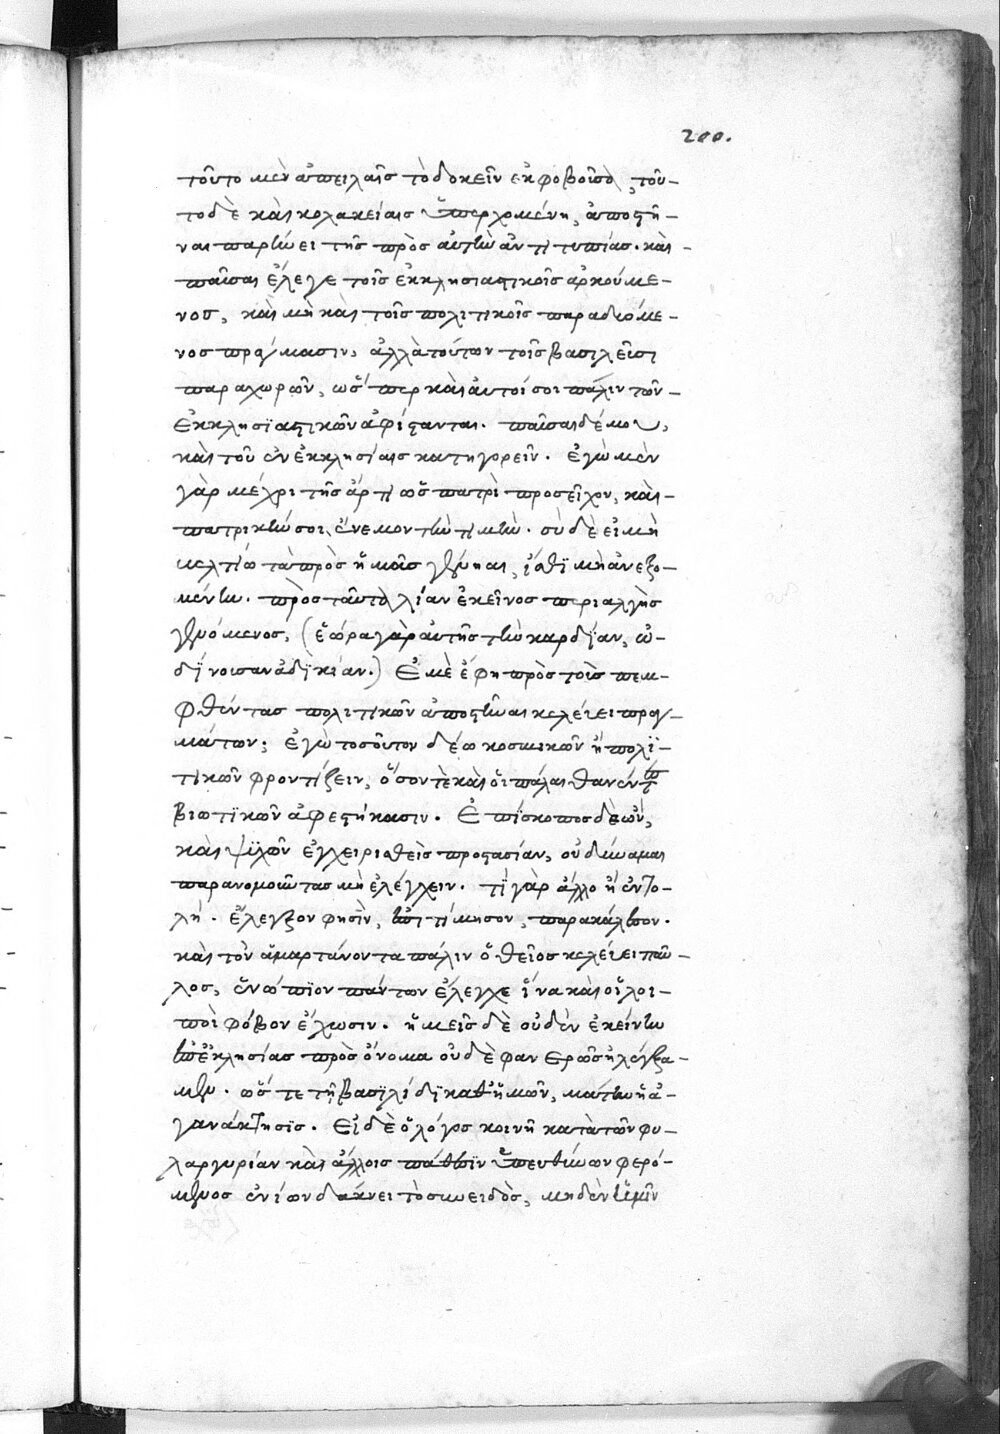 200.
τοῦτο μὲν ἀπειλαῖς τὸ δοκεῖν ἐκφοβοῦσα, τοῦ-
το δὲ καὶ κολακείαις ὑπερχομένη, ἀποστῆ-
ναι παρῄνει τῆς πρὸς αὐτὴν ἀντιτυπίας. καὶ
παῦσαι ἔλεγε τοῖς ἐκκλησιαστικοῖς ἀρκούμε-
νος, καὶ μὴ καὶ τοῖς πολιτικοῖς παραδυόμε-
νος πράγμασιν, ἀλλὰ τούτων τοῖς βασιλεῦσι
παραχωρῶν, ὥσπερ καὶ αὐτοί σοι πάλιν τῶν
Ἐκκλησϊαστικῶν ἀφίστανται. παῦσαι δέ μου,
καὶ τοῦ ἐν ἐκκλησίαις κατηγορεῖν. Ἐγὼ μὲν
γὰρ μέχρι τῆς ἄρτι ὡς πατρὶ προσεῖχον, καὶ
πατρικήν σοι ἔνεμον τὴν τιμήν. σὺ δὲ εἰ μὴ
βελτίω τὰ πρὸς ἡμᾶς γένηται, ἴσθϊ μὴ ἀνεξο-
μένην. πρὸς ταῦτα λίαν ἐκεῖνος περιαλγὴς
γενόμενος, (ἑώρα γὰρ αὐτῆς τὴν καρδϊαν, ὠ-
δίνουσαν ἀδϊκίαν.) Ἐμὲ ἔφη πρὸς τοὺς πεμ-
φθέντας πολιτικῶν ἀποστῆναι κελεύει πραγ-
μάτων; ἐγὼ τοσοῦτον δέω κοσμικῶν ἢ πολϊ-
τικῶν φροντίζειν, ὅσον τὲ καὶ οἱ πάλαι θανόντες
βιωτϊκῶν ἀφεστήκασιν. Ἐπίσκοπος δὲ ὤν,
καὶ ψυχῶν ἐγχειρισθεὶς προστασίαν, οὐ δύναμαι
παρανομοῦντας μὴ ἐλέγχειν. τί γὰρ ἄλλο ἡ ἐντο-
λή. Ἔλεγξον φησὶν, ἐπιτίμησον, παρακάλεσον.
καὶ τὸν ἁμαρτάνοντα πάλιν ὁ θεῖος κελεύει παῦ-
λος, ἐνώπϊον πάντων ἔλεγχε ἵνα καὶ οἱ λοι-
ποὶ φόβον ἔχωσιν. ἡμεῖς δὲ οὐδὲν ἐκείνην
ἐπ' ἐκκλησίας πρὸς ὄνομα οὐδὲ φανερῶς ἠλέγξα-
μεν. ὥστε τῇ βασϊλίδϊ καθ' ἡμῶν, μάτην ἡ ἀ-
γανάκτησϊς. Εἰ δὲ ὁ λόγος κοινῆ κατὰ τῶν φι-
λαργυρίαν καὶ ἄλλοις πάθεσϊν ὑπευθύνων φερό-
μενος ἐνίων δάκνει τὸ συνειδὸς, μηδὲν ἡμῖν